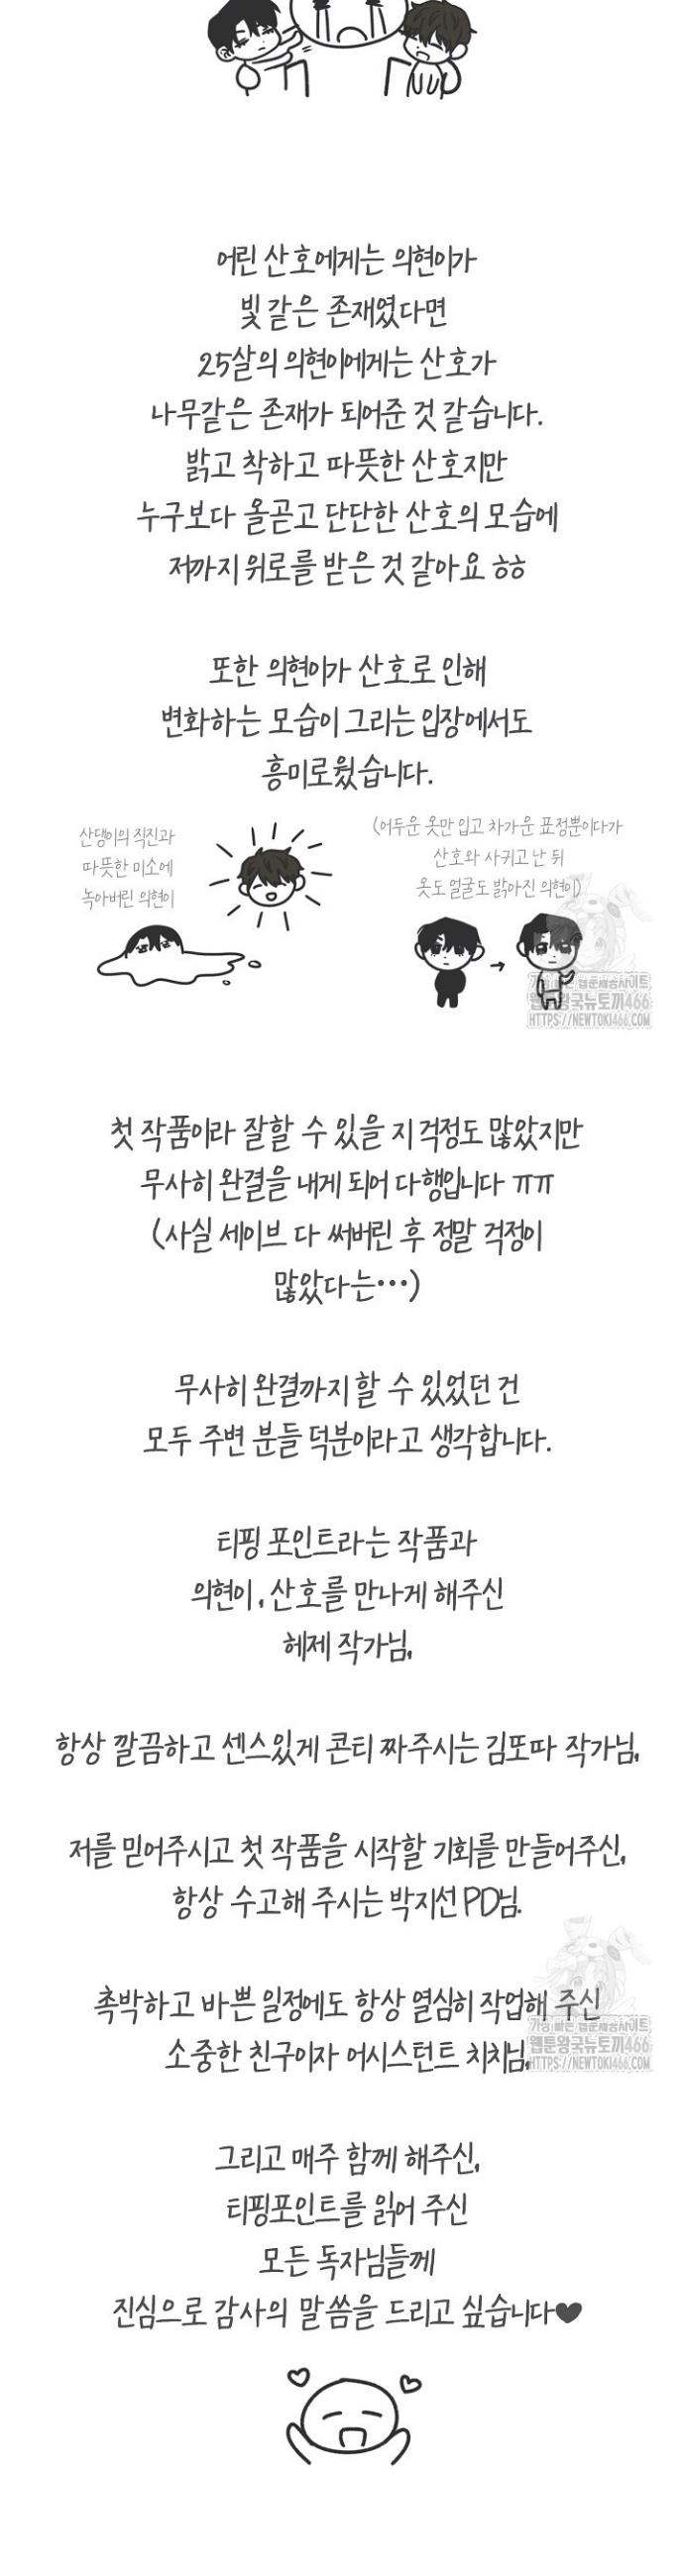 어린 산호에게는 의현이가
빛 같은 존재였다면
25살의 의현이에게는 산호가
나무같은 존재가 되어준 것 같습니다.
밝고 착하고 따뜻한 산호지만
누구보다 올곧고 단단한 산호의 모습에
저까지 위로를 받은 것 같아요 ㅎㅎ
또한 의현이가 산호로 인해
변화하는 모습이 그리는 입장에서도
흥미로웠습니다.
산댕이의 직진과
따뜻한 미소에
녹아버린 의현이
(어두운 옷만 입고 차가운 표정뿐이다가
산호와 사귀고 난 뒤
옷도 얼굴도 밝아진 의현이)
가장 빠른 웹툰제공사이트
웹툰왕국뉴토끼466
HTTPS://NEWTOKI466.COM
첫 작품이라 잘할 수 있을 지 걱정도 많았지만
무사히 완결을 내게 되어 다행입니다 ㅠㅠ
(사실 세이브 다 써버린 후 정말 걱정이
많았다는…)
무사히 완결까지 할 수 있었던 건
모두 주변 분들 덕분이라고 생각합니다.
티핑 포인트라는 작품과
의현이, 산호를 만나게 해주신
헤제 작가님,
항상 깔끔하고 센스있게 콘티 짜주시는 김또따 작가님,
저를 믿어주시고 첫 작품을 시작할 기회를 만들어주신,
항상 수고해 주시는 박지선 PD님.
촉박하고 바쁜 일정에도 항상 열심히 작업해 주신
소중한 친구이자 어시스턴트 치치님,
가장 빠른 웹툰제공사이트
웹툰왕국뉴토끼466
HTTPS://NEWTOKI466.COM
그리고 매주 함께 해주신,
티핑포인트를 읽어 주신
모든 독자님들께
진심으로 감사의 말씀을 드리고 싶습니다♥